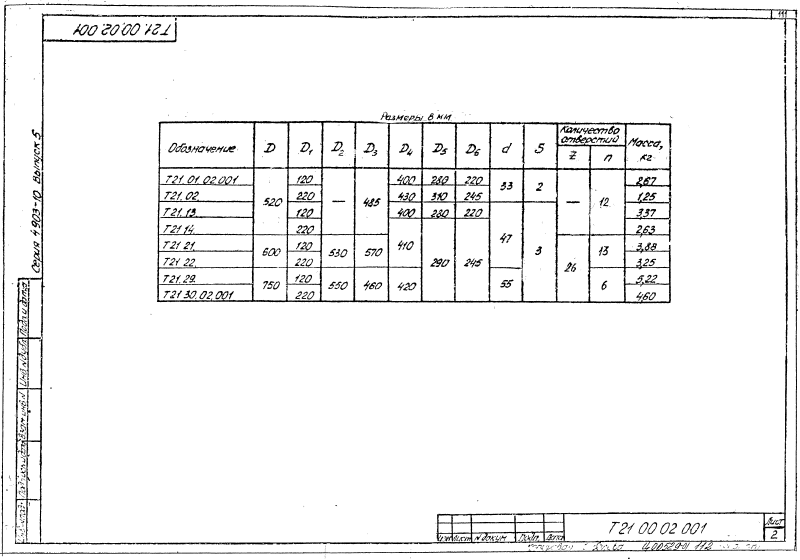 111
Т21.00.02.001
Серия 4.903-10 Выпуск 5
Размеры в мм
Обозначение D D1 D2 D3 D4 D5 D6 d S Количество отверстий Z n Масса, кг
Т21.01.02.001 520 120 — 485 400 280 220 33 2 — 12 2,67
Т21.02. 220 430 310 245 1,25
Т21.13. 120 400 280 220 47 3 3,37
Т21.14. 220 410 290 245 2,63
Т21.21. 600 120 530 570 26 13 3,88
Т21.22. 220 3,25
Т21.29. 750 120 550 460 420 55 6 5,22
Т21.30.02.001 220 4,60
Инв.№дубл. Подп. и дата
Взам.инв.N
Изм Лист N докум. Подп. Дата
Т21.00.02.001
Лист
2
112